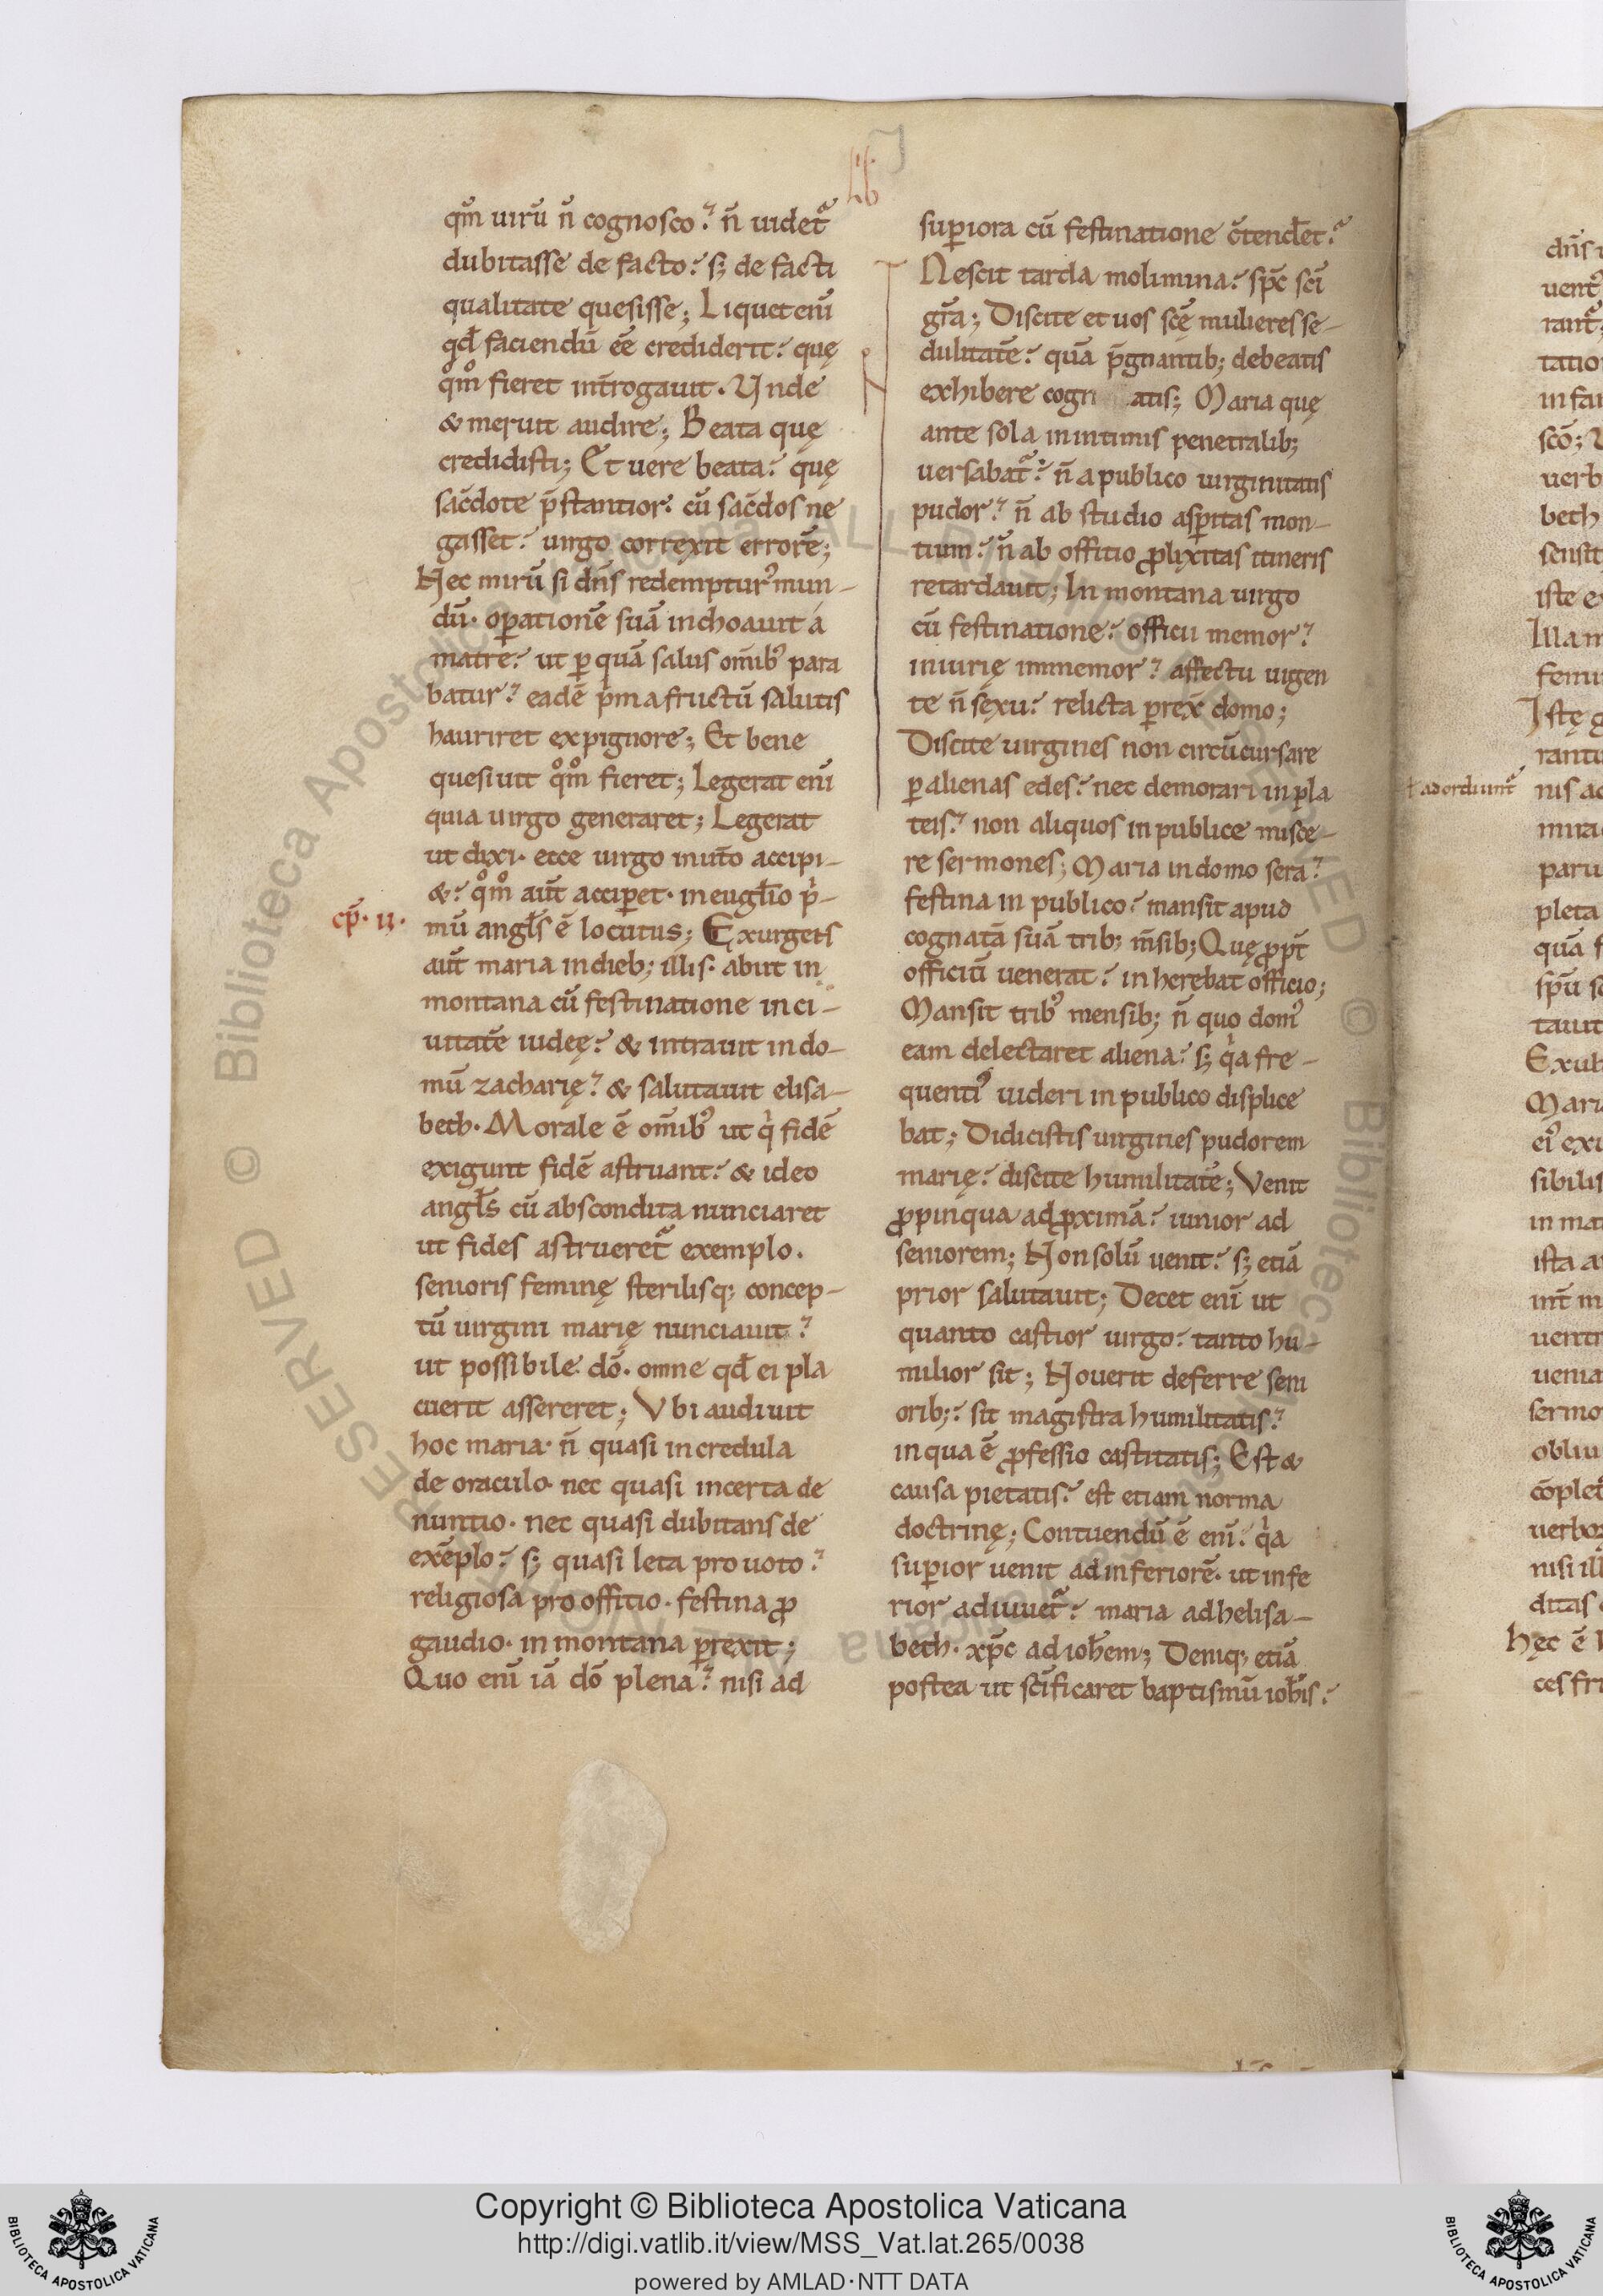 Lib̄ I
qm̄ uirū n̄ cognosco? n̄ uidet᷑
dubitasse de facto? s; de facti
qualitate quesisse; Liquet eni̅
qđ faciendū ee̅ crediderit? quę
qͦmͦ fieret int̅rogauit. Unde
& meruit audire; Beata quę
credidisti; Et uere beata? quę
sac̅dote p̅stantior. cū sac̅dos ne
gasset? uirgo correxit errore̅;
Nec mirū si dn̅s redemptur᾽ mun-
dū. op̲atione̅ suā inchoauit á
matre? ut p̲ quā salus om̅ib᾽ para
batur? eade̅ p̅ma fructū salutis
hauriret ex pignore; Et bene
quesiuit qͦmͦ fieret; Legerat eni̅
quia uirgo generaret; Legerat
ut dixi. ecce uirgo in ut̅o accipi-
&? qͦmͦ aut̅ accip̲et. in eugl̅io pⁱ-
mū angl̅s e̅ locutus; Exurgens
cp̅. ii.
aut̅ maria in dieb; illis. abiit in
montana cū festinatione in ci-
uitate̅ iudeę? & intrauit in do-
mū zacharię? & salutauit elisa-
beth. Morale e̅ om̅ib᾽ ut qⁱ fide̅
exigunt fide̅ astruant? & ideo
angl̅s cū abscondita nunciaret
ut fides astrueret᷑ exemplo.
senioris feminę sterilisq; concep-
tū uirgini marię nunciauit?
ut possibile do̅. omne qđ ei pla
cuerit assereret; Vbi audiuit
hoc maria. n̄ quasi incredula
de oraculo. nec quasi incerta de
nuntio. nec quasi dubitans de
exe̅plo? s; quasi leta pro uoto?
religiosa pro offitio. festina ꝓ
gaudio. in montana p̲rexit;
Quo eni̅ iā do̅ plena? nisi ad
sup̲iora cū festinatione c̅tenderet᷑.
Nescit tarda molimina? sp̅c sc̅i
gr̅a; Discite et uos sce̅ mulieres se-
dulitate̅? quā p̅gnantib; debeatis
exhibere cogn atis; Maria quę
ante sola in intimis penetralib;
uersabat᷑? n̄ a publico uirginitatis
pudor? n̄ ab studio asp̲itas mon-
tium? n̄ ab offitio ꝓlixitas itineris
retardauit; In montana uirgo
cū festinatione? officii memor?
iniurię immemor? affectu uigen
te n̄ sexu? relicta p̲rex̅ domo;
Discite uirgines non circūcursare
p̲ alienas edes? nec demorari in pla
teis? non aliquos in publice misce-
re sermones; Maria in domo sera?
festina in publico? mansit apud
cognatā suā trib; m̅sib; Quę ꝓpt̅
officiū uenerat? inherebat officio;
Mansit trib᾽ mensib; n̄ quo dom᾽
eam delectaret aliena? s; qⁱa fre-
quenti᾽ uideri in publico displice
bat; Didicistis uirgines pudorem
marię? discite humilitate̅; Venit
ꝓpinqua ad ꝓximā? iunior ad
seniorem; Non solū uenit? s; etiā
prior salutauit; Decet eni̅ ut
quanto castior uirgo? tanto hu-
milior sit; Nouerit deferre seni
orib;? sit magistra humilitatis?
in qua e̅ ꝓfessio castitatis; Est &
causa pietatis? est etiam norma
doctrinę; Contuendū e̅ eni̅? qⁱa
sup̲ior uenit ad inferiore̅. ut infe
rior adiuuet᷑? maria ad helisa-
beth. xp̅c ad ioh̅em; Deniq; etiā
postea ut sc̅ificaret baptismū ioh̅is?
ł adordiunt᷑
Copyright © Biblioteca Apostolica Vaticana
http://digi.vatlib.it/view/MSS_Vat.lat.265/0038
powered by AMLAD·NTT DATA
BIBLIOTECA APOSTOLICA VATICANA
BIBLIOTECA APOSTOLICA VATICANA